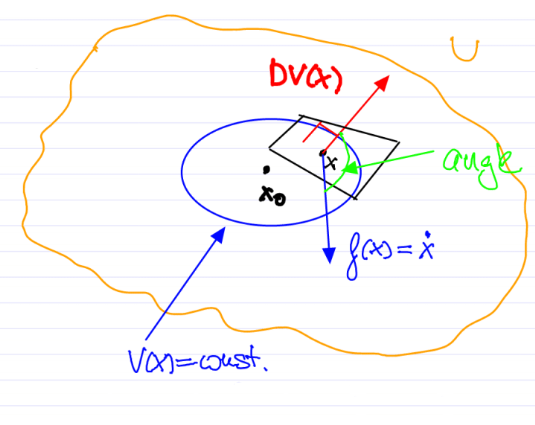 U
DV(x)
x
angle
x₀
f(x) = ẋ
V(x)=const.